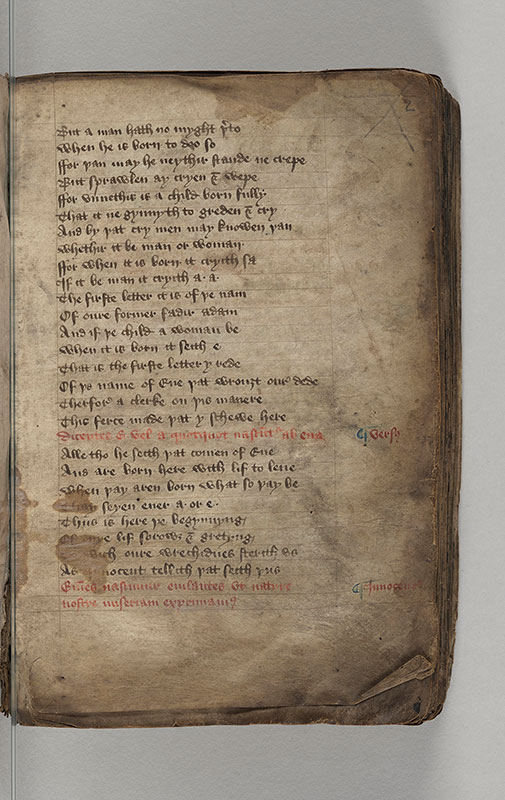 2
But a man hath no myght þ̉to
When he is born to doo so
ffor þan may he neythir stande ne crepe
But sprawlen ay cryen & wepe
ffor vnnethis is a child born fully
That it ne gynnyth to greden & cry
And by þat cry men may knowen þan
Whethir it be man or woman
ffor when it is born it cryith sa
If it be man it cryith a · a ·
The firste letter it is of þe nam
Of oure former fadir adam
And if þe child a woman be
When it is born it seith e
That is the firste letter y rede
Of þe name of Eue þat wrouȝt our dede
Therfor a clerke on þis manere
This ferce made þat y schewe here
Dicentes E vel a quotquot nascūt̉ ab eua
¶ Versꝫ
Alle tho he seith þat comen of Eue
And are born here with lif to leue
When þay aren born what so þay be
seyen euer a · or e ·
Thus is here þe begynnyng
oure lif sorow & gretyng
oure wrechidnes sterith vs
As innocent tellith þat seith þus
Om̄es nascimur eiulantes vt nature
¶ Innocen
nostre miseriam exprimamꝰ